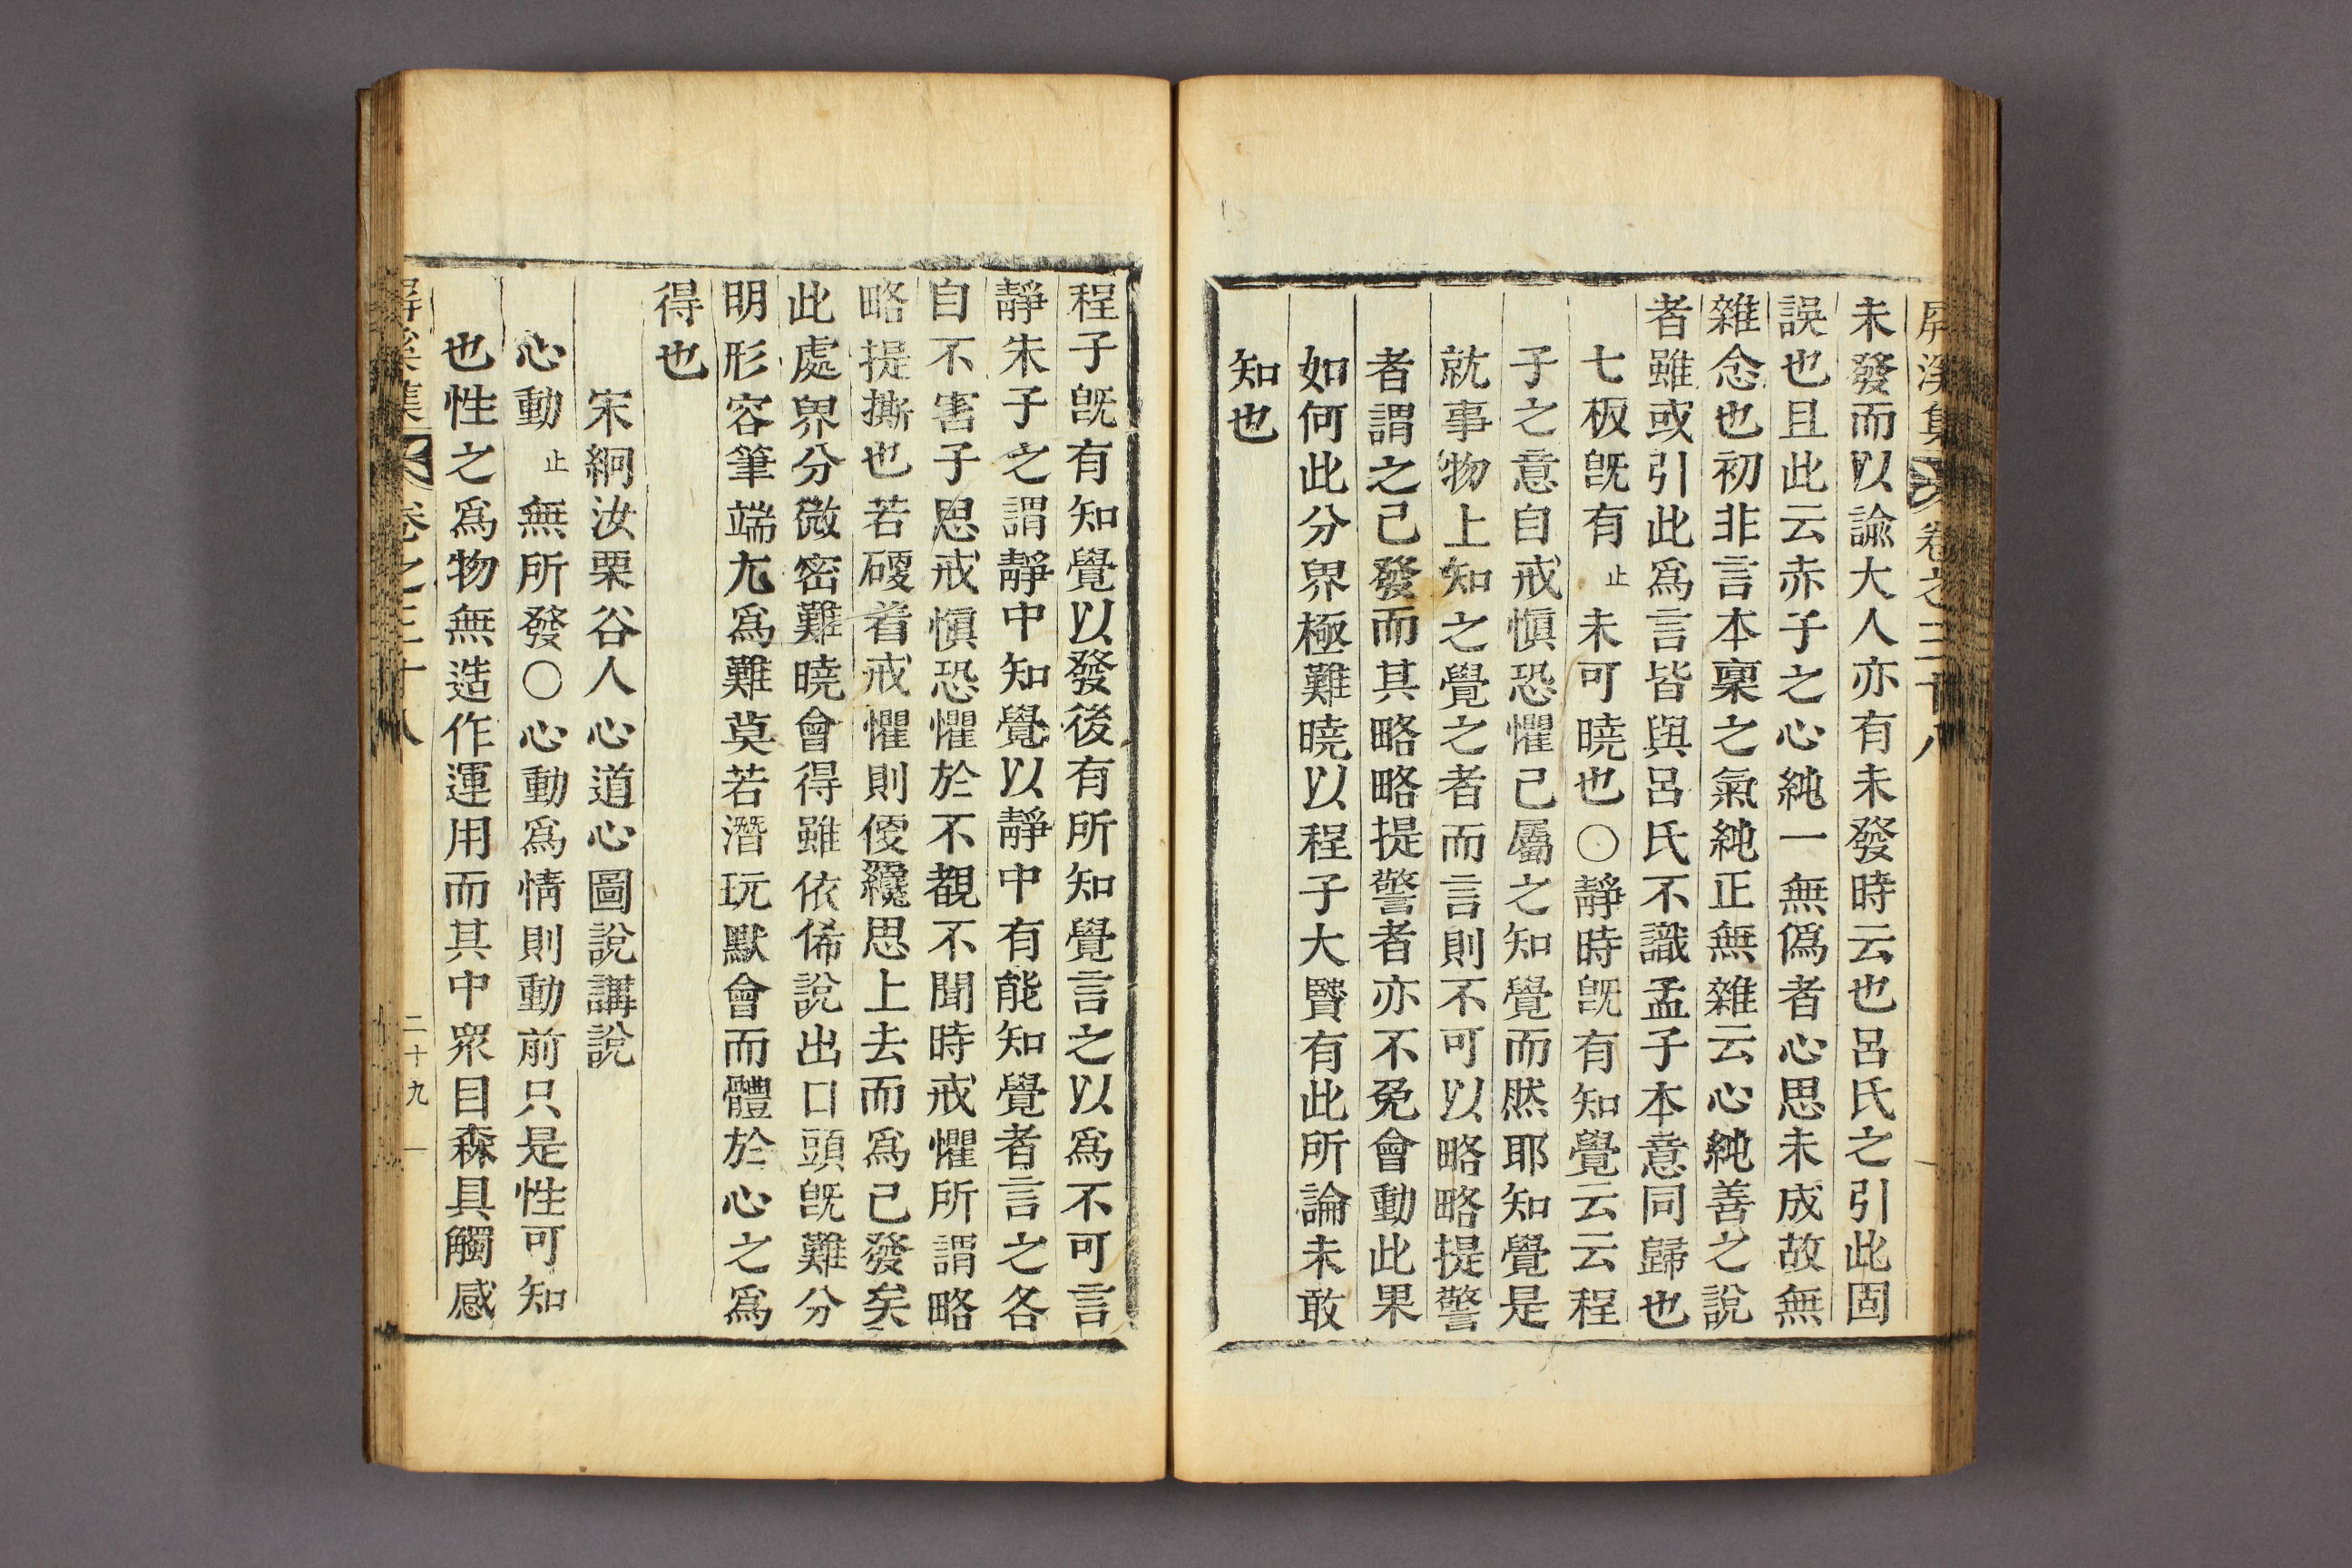 屛溪集 卷之三十八
未發而以諭大人亦有未發時云也呂氏之引此固
誤也且此云赤子之心純一無僞者心思未成故無
雜念也初非言本稟之氣純正無雜云心純善之說
者雖或引此爲言皆與呂氏不識孟子本意同歸也
七板旣有止未可曉也○靜時旣有知覺云云程
子之意自戒愼恐懼已屬之知覺而然耶知覺是
就事物上知之覺之者而言則不可以略略提警
者謂之已發而其略略提警者亦不免會動此果
如何此分界極難曉以程子大賢有此所論未敢
知也
程子旣有知覺以發後有所知覺言之以爲不可言
靜朱子之謂靜中知覺以靜中有能知覺者言之各
自不害子思戒愼恐懼於不覩不聞時戒懼所謂略
略提撕也若硬着戒懼則便纔思上去而爲已發矣
此處界分微密難曉會得雖依俙說出口頭旣難分
明形容筆端尢爲難莫若潛玩默會而體於心之爲
得也
宋絅汝栗谷人心道心圖說講說
心動止無所發○心動爲情則動前只是性可知
也性之爲物無造作運用而其中衆目森具觸感
屛溪集 卷之三十八 二十九